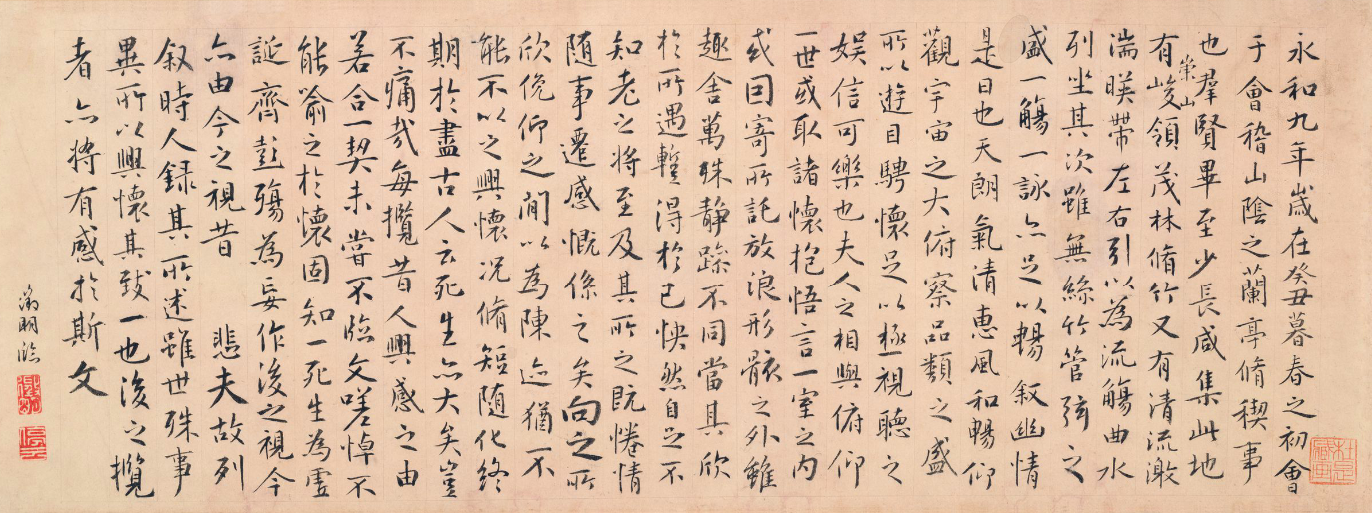 永和九年歲在癸丑暮春之初會
于會稽山陰之蘭亭脩稧事
也羣賢畢至少長咸集此地
有崇山峻領茂林脩竹又有清流激
湍暎帶左右引以為流觴曲水
列坐其次雖無絲竹管弦之
盛一觴一詠亦足以暢叙幽情
是日也天朗氣清惠風和暢仰
觀宇宙之大俯察品類之盛
所以遊目騁懷足以極視聽之
娛信可樂也夫人之相與俯仰
一世或取諸懷抱悟言一室之內
或因寄所託放浪形骸之外雖
趣舍萬殊静躁不同當其欣
於所遇蹔得於己怏然自足不
知老之將至及其所之既惓情
随事遷感慨係之矣向之所
欣俛仰之間以為陳迹猶不
能不以之興懷况脩短随化終
期於盡古人云死生亦大矣豈
不痛哉每攬昔人興感之由
若合一契未嘗不臨文嗟悼不
能喻之於懷固知一死生為虛
誕齊彭殤為妄作後之視今
亦由今之視昔 悲夫故列
叙時人録其所述雖世殊事
異所以興懷其致一也後之攬
者亦將有感於斯文
徵明臨
徵明